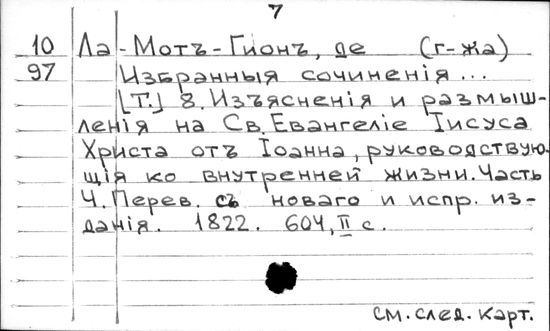 7
10 Ла-Мотъ-Гионъ, де (г-жа)
97 Избранныя сочиненія...
[Т.] 8. Изъясненія и размыш-
ленія на Св. Евангеліе Іисуса
Христа отъ Іоанна, руководствую-
щія ко внутренней жизни. Часть
4. Перев. съ новаго и испр. из-
данія. 1822. 604, II с.
см. след. карт.